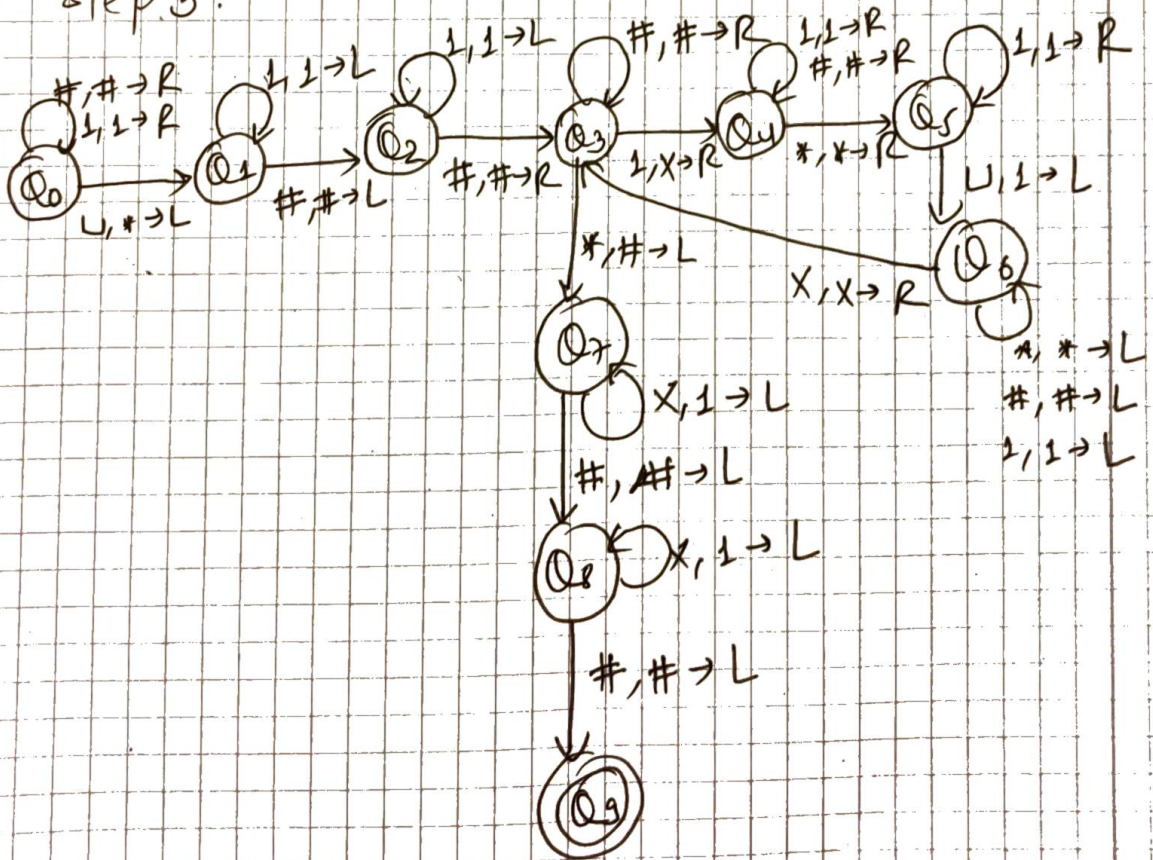 Step 3:
#, # → R
1, 1 → R
Q0
⊔, * → L
1, 1 → L
Q1
#, # → L
1, 1 → L
Q2
#, # → R
#, # → R
Q3
1, X → R
1, 1 → R
#, # → R
Q4
*, * → R
1, 1 → R
Q5
⊔, 1 → L
Q6
X, X → R
*, * → L
#, # → L
1, 1 → L
*, # → L
Q7
X, 1 → L
#, # → L
Q8
X, 1 → L
#, # → L
Q9